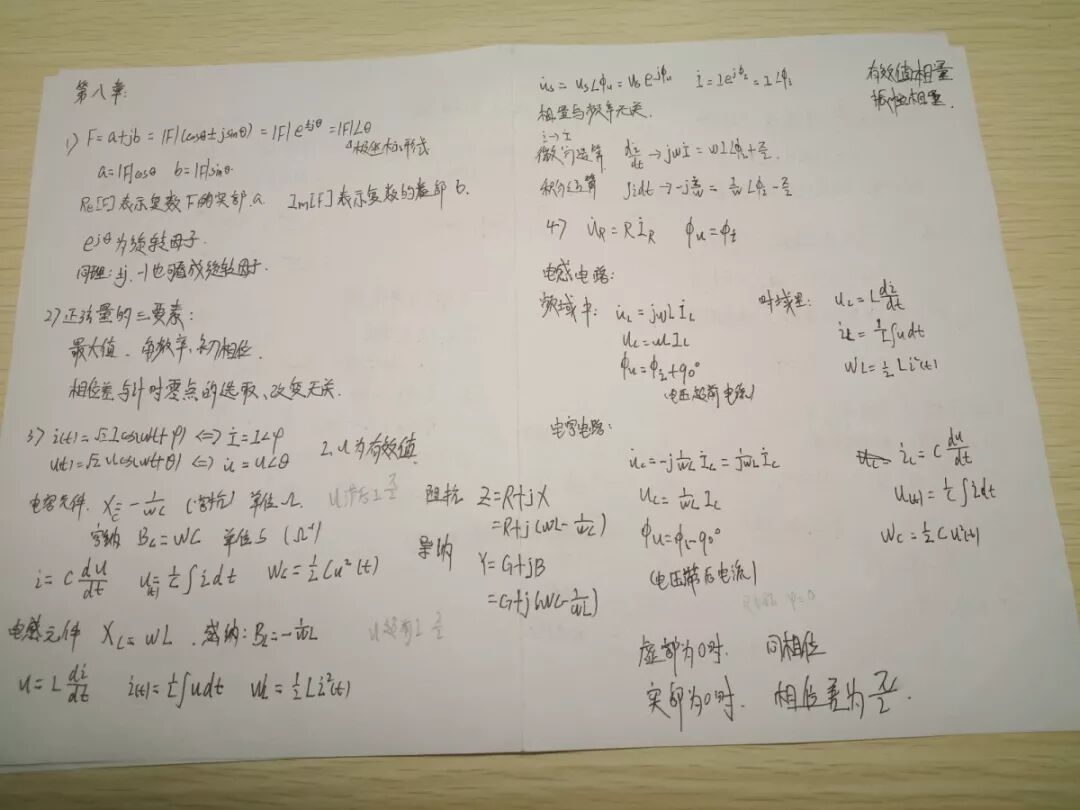 第八章:
1) F=a+jb=|F|(cosθ±jsinθ)=|F|e^{±jθ}=|F|∠θ
极坐标形式
a=|F|cosθ b=|F|sinθ.
Re[F]表示复数下的实部a. Im[F]表示复数的虚部b.
e^{jθ}为旋转因子.
同理:±j、-1也可看成旋转因子.
2)正弦量的三要素:
最大值、角频率、初相位.
相位差与计时零点的选取、改变无关.
3) i(t)=√2Icos(ωt+φ) <=> İ=I∠φ
u(t)=√2Ucos(ωt+θ) <=> u̇=U∠θ
I、U为有效值
电容元件. X_C=-1/ωC (容抗) 单位Ω. U滞后I π/2
容纳 B_C=ωC 单位S (Ω⁻¹)
i=C du/dt u(t)=1/C∫idt W_C=1/2Cu²(t)
电感元件 X_L=ωL. 感纳:B_L=-1/ωL U超前I π/2
u=L di/dt i(t)=1/L∫udt W_L=1/2Li²(t)
阻抗 Z=R+jX
=R+j(ωL-1/ωC)
导纳 Y=G+jB
=G+j(ωC-1/ωL)
u̇s=Us∠φu=Us e^{jφu} i̇=Ie^{jφi}=I∠φi
有效值相量
振幅相量.
相量与频率无关.
i→İ
微分运算 di/dt→jωİ=ωI∠φi+π/2
积分运算 ∫idt→-jİ/ω=I/ω∠φi-π/2
4) u̇_R=Rİ_R φu=φi
电感电路:
频域中: u̇_L=jωLİ_L
U_L=ωLI_L
φu=φi+90°
(电压超前电流)
时域里: u_L=L di/dt
i_L=1/L∫udt
W_L=1/2Li²(t)
电容电路:
u̇_C=-j1/ωC İ_C=1/jωC İ_C
U_C=1/ωC I_C
φu=φi-90°
(电压滞后电流)
i_C=C du/dt
u(t)=1/C∫idt
W_C=1/2Cu²(t)
φ=0
虚部为0时. 同相位
实部为0时. 相位差为π/2.